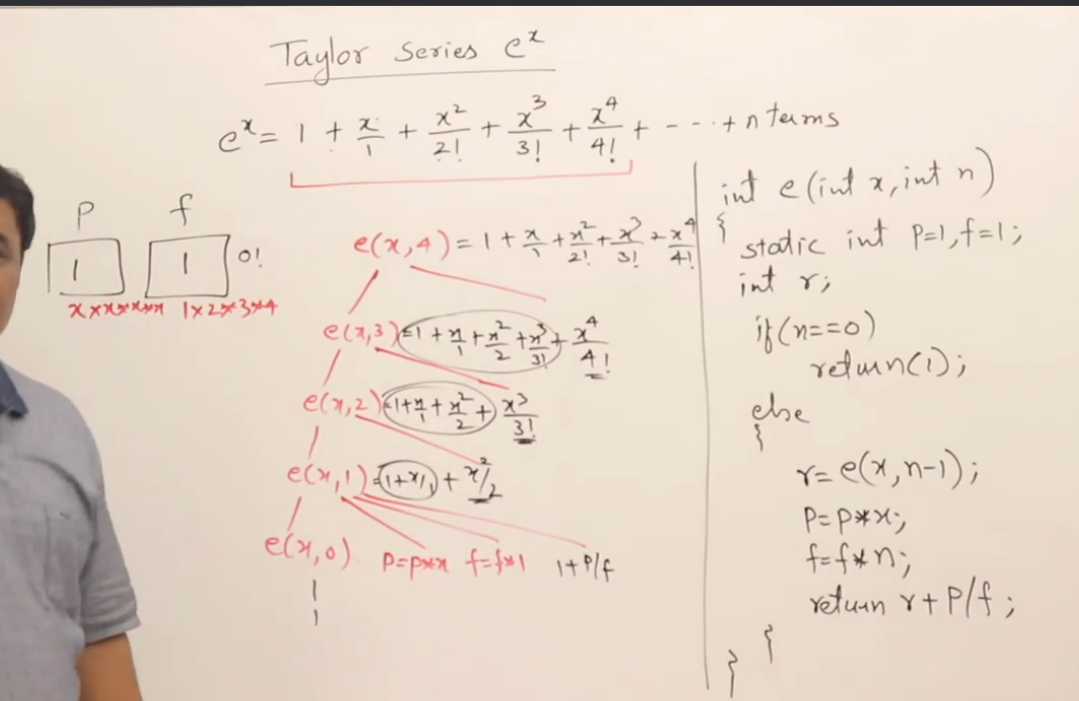 Taylor Series e^x
e^x = 1 + x/1 + x²/2! + x³/3! + x⁴/4! + - - - - + n terms
P f
1 1 0!
x*x*x*x*x 1×2*3*4
e(x,4) = 1 + x/1 + x²/2! + x³/3! + x⁴/4!
e(x,3) = 1 + x/1 + x²/2 + x³/3! + x⁴/4!
e(x,2) = 1 + x/1 + x²/2 + x³/3!
e(x,1) = 1 + x/1 + x²/2
e(x,0). P=P*x f=f*1 1+P/f
1
int e(int x, int n)
{
static int P=1, f=1;
int r;
if(n==0)
return(1);
else
{
r= e(x,n-1);
P=P*x;
f=f*n;
return r+P/f;
}
}